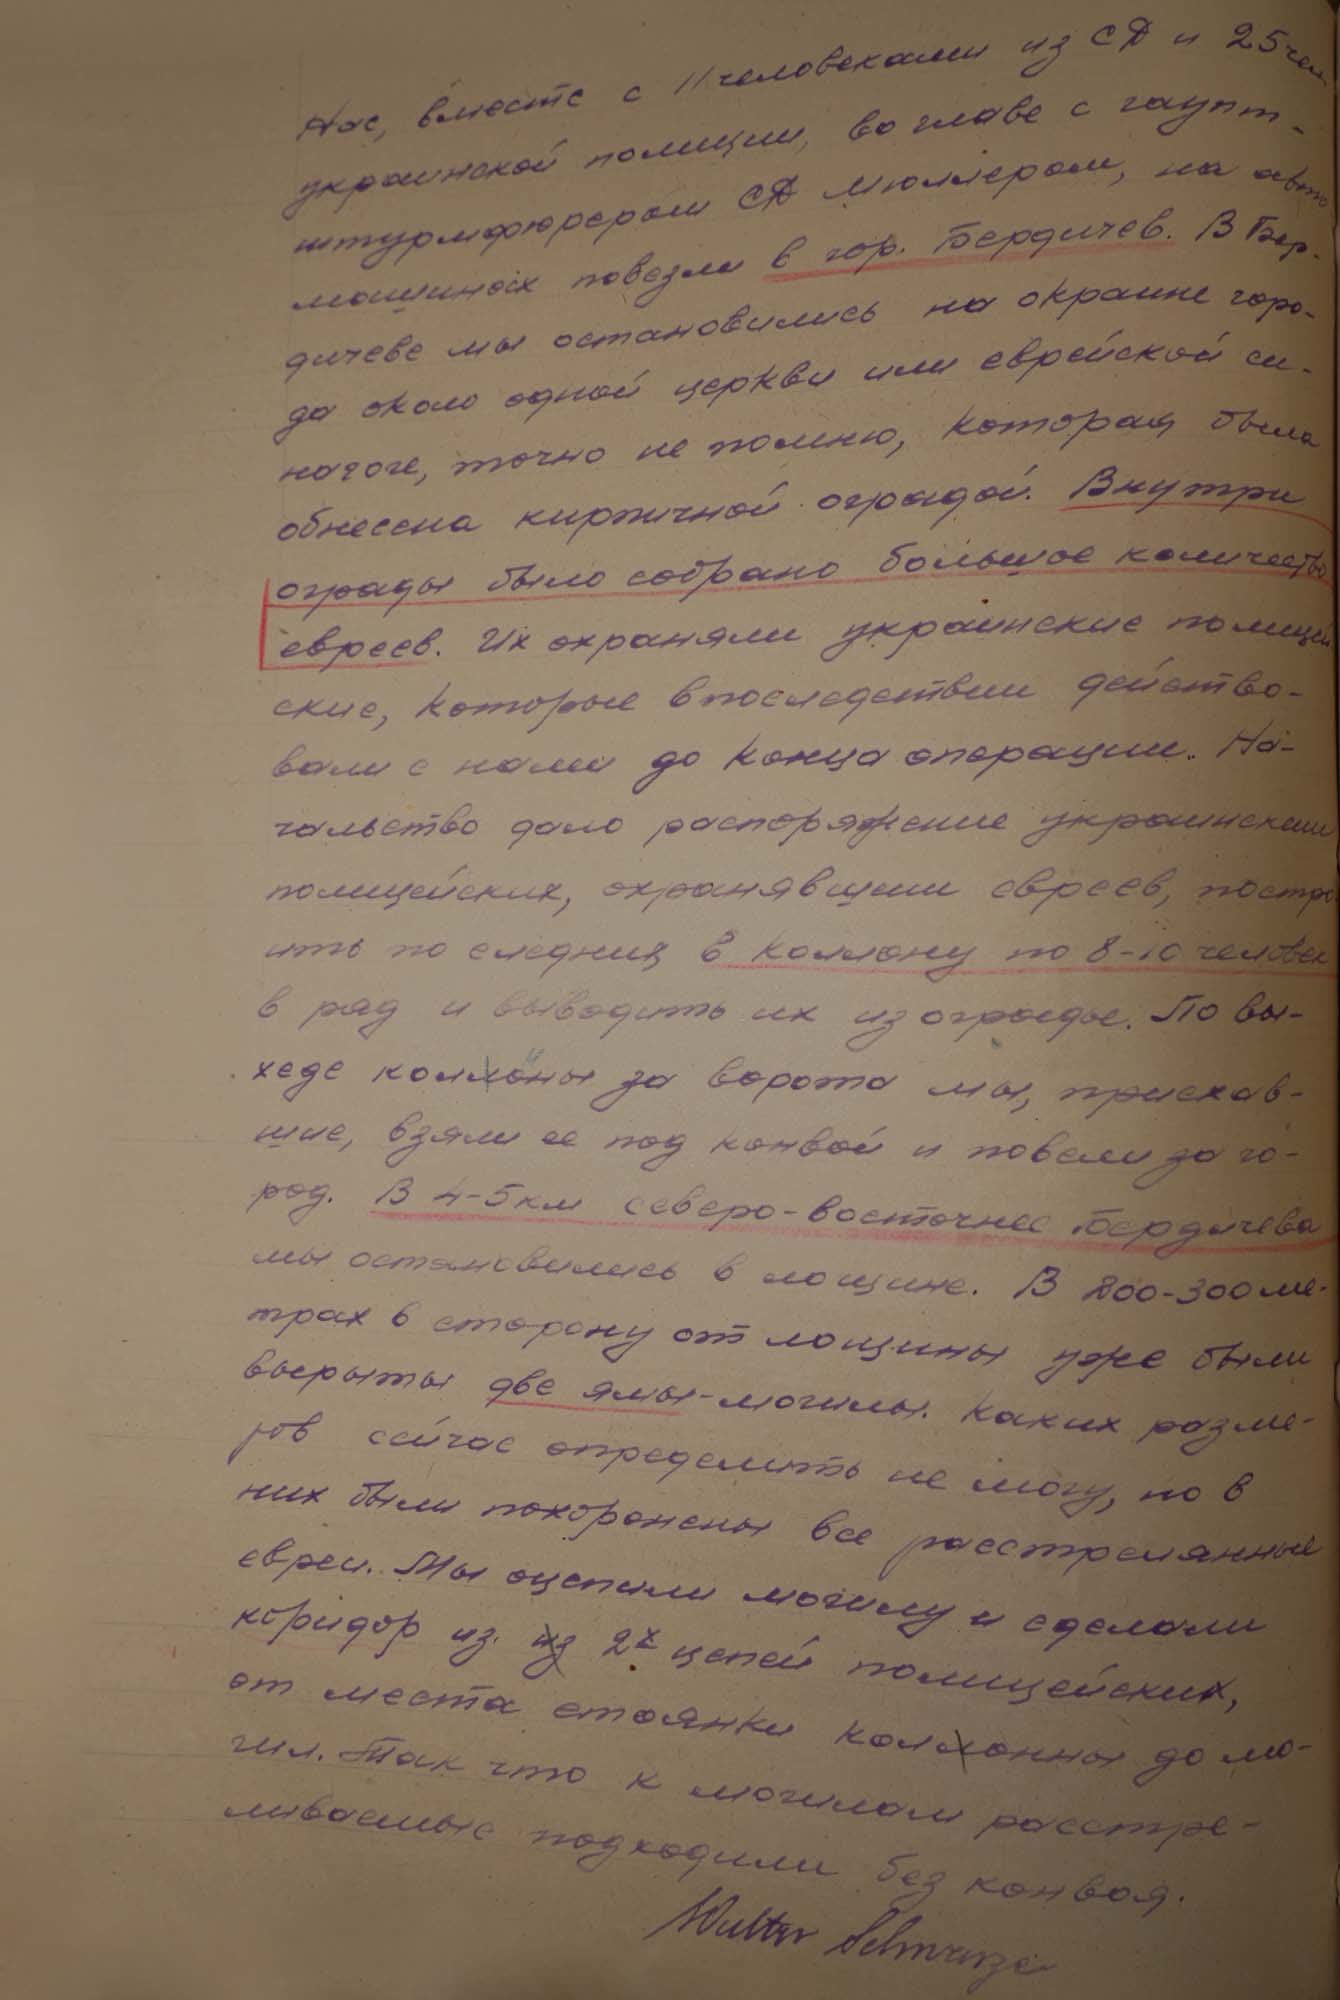 Нас, вместе с 11 человеками из СД и 25 чел.
украинской полиции, во главе с гаупт-
штурмфюрером СД Мюллером, на авто
машинах повезли в гор. Бердичев. В Бер-
дичеве мы остановились на окраине горо-
да около одной церкви или еврейской си-
нагоге, точно не помню, которая была
обнесена кирпичной оградой. Внутри
ограды было собрано большое количество
евреев. Их охраняли украинские полицей
ские, которые впоследствии действо-
вали с нами до конца операции. На-
чальство дало распоряжение украинским
полицейских, охранявшим евреев, постро
ить последних в коллону по 8-10 человек
в ряд и выводить их из ограды. По вы-
ходе коллоны за ворота мы, приехав-
шие, взяли ее под конвой и повели за го-
род. В 4-5 км северо-восточнее Бердичева
мы остановились в лощине. В 200-300 ме-
трах в сторону от лощины уже были
вырыты две ямы-могилы. Каких разме-
ров сейчас определить не могу, но в
них были похоронены все расстрелянные
евреи. Мы оцепили могилу и сделали
коридор из из 2х цепей полицейских,
от места стоянки коллонны до мо-
гил. Так что к могилам расстре-
ливаемые подходили без конвоя.
Walter